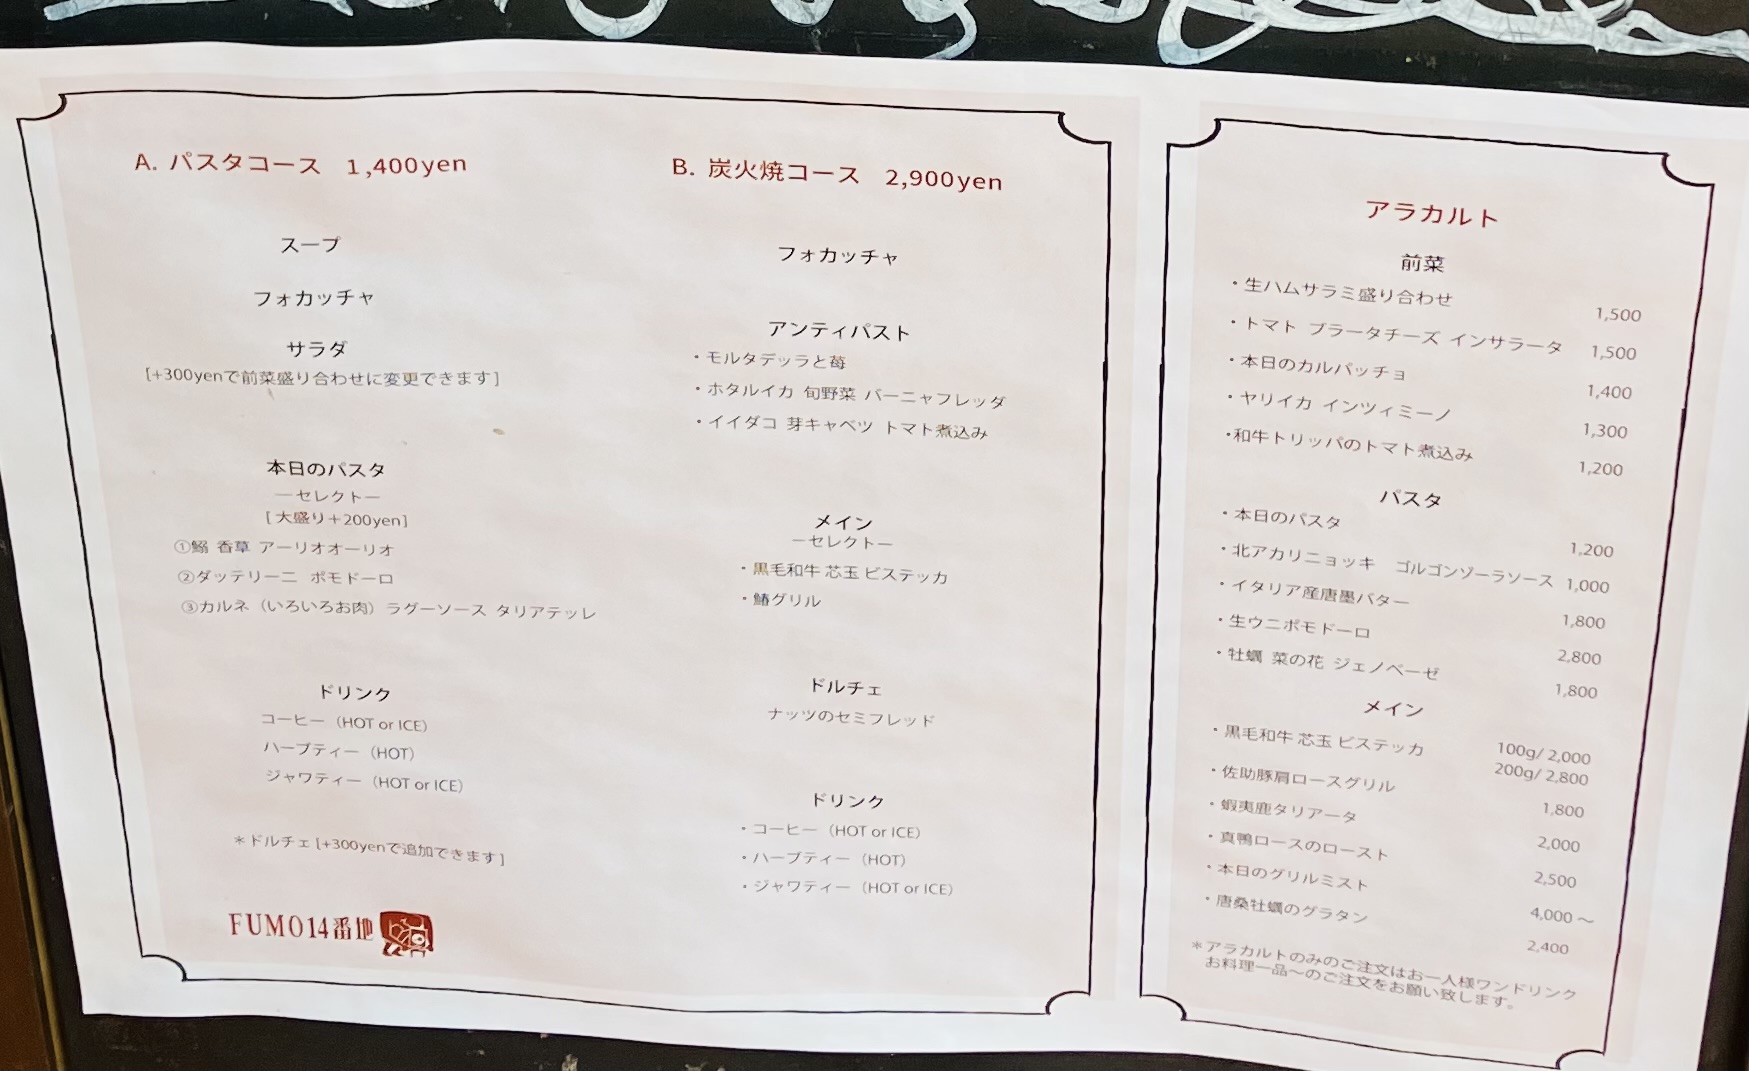 A. パスタコース 1,400yen
スープ
フォカッチャ
サラダ
[+300yenで前菜盛り合わせに変更できます]
本日のパスタ
―セレクト―
[大盛り+200yen]
①鰯 香草 アーリオオーリオ
②ダッテリーニ ポモドーロ
③カルネ（いろいろお肉）ラグーソース タリアテッレ
ドリンク
コーヒー（HOT or ICE）
ハーブティー（HOT）
ジャワティー（HOT or ICE）
＊ドルチェ [+300yenで追加できます]
FUMO14番地
B. 炭火焼コース 2,900yen
フォカッチャ
アンティパスト
・モルタデッラと苺
・ホタルイカ 旬野菜 バーニャフレッダ
・イイダコ 芽キャベツ トマト煮込み
メイン
―セレクト―
・黒毛和牛 芯玉 ビステッカ
・鰆グリル
ドルチェ
ナッツのセミフレッド
ドリンク
・コーヒー（HOT or ICE）
・ハーブティー（HOT）
・ジャワティー（HOT or ICE）
アラカルト
前菜
・生ハムサラミ盛り合わせ 1,500
・トマト ブラータチーズ インサラータ 1,500
・本日のカルパッチョ 1,400
・ヤリイカ インツィミーノ 1,300
・和牛トリッパのトマト煮込み 1,200
パスタ
・本日のパスタ 1,200
・北アカリニョッキ ゴルゴンゾーラソース 1,000
・イタリア産唐墨バター 1,800
・生ウニポモドーロ 2,800
・牡蠣 菜の花 ジェノベーゼ 1,800
メイン
・黒毛和牛 芯玉 ビステッカ 100g/ 2,000
200g/ 2,800
・佐助豚肩ロースグリル 1,800
・蝦夷鹿タリアータ 2,000
・真鴨ロースのロースト 2,500
・本日のグリルミスト 4,000～
・唐桑牡蠣のグラタン 2,400
＊アラカルトのみのご注文はお一人様ワンドリンク
お料理一品～のご注文をお願い致します。